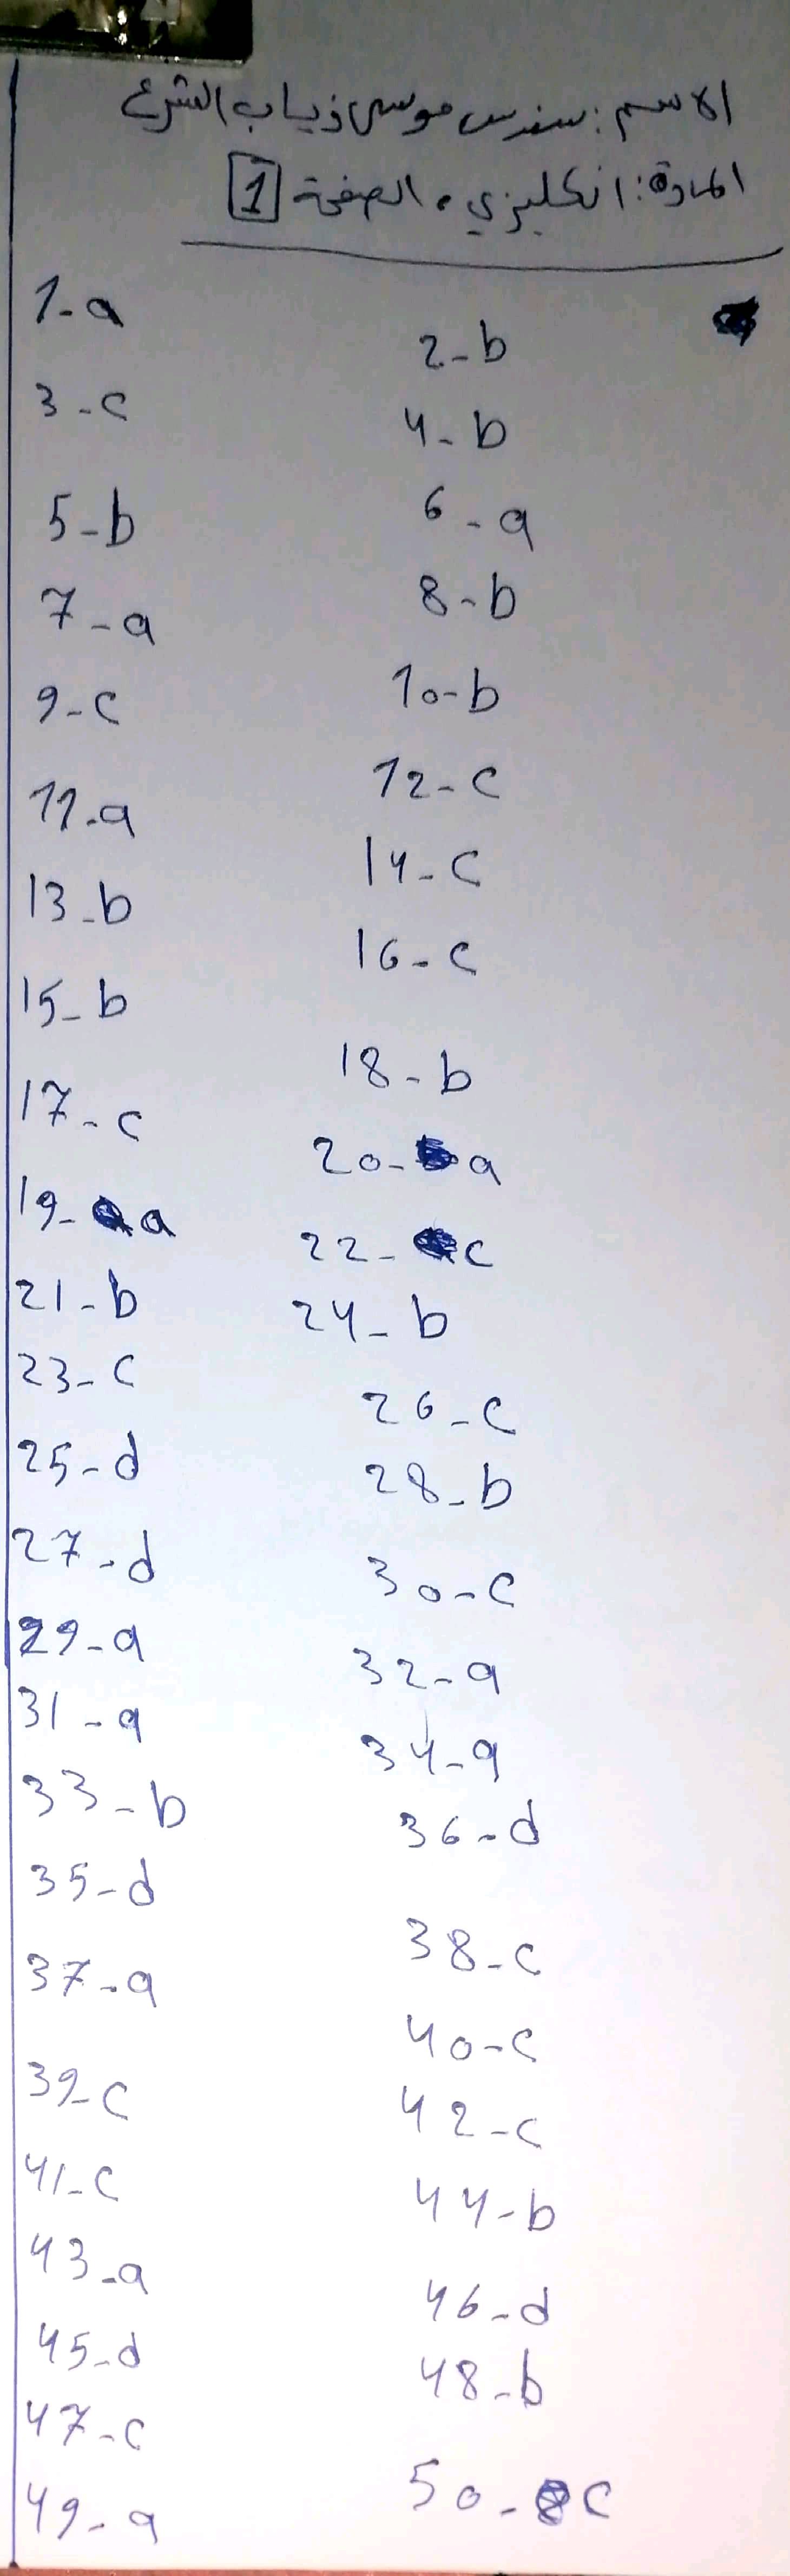 الاسم: سندس موسى ذياب الشرع
المادة: انكليزي. الصفحة 1
1-a
2-b
3-c
4-b
5-b
6-a
7-a
8-b
9-c
10-b
11-a
12-c
13-b
14-c
15-b
16-c
17-c
18-b
19-a
20-a
21-b
22-c
23-c
24-b
25-d
26-c
27-d
28-b
29-a
30-c
31-a
32-a
33-b
34-a
35-d
36-d
37-a
38-c
39-c
40-c
41-c
42-c
43-a
44-b
45-d
46-d
47-c
48-b
49-a
50-c